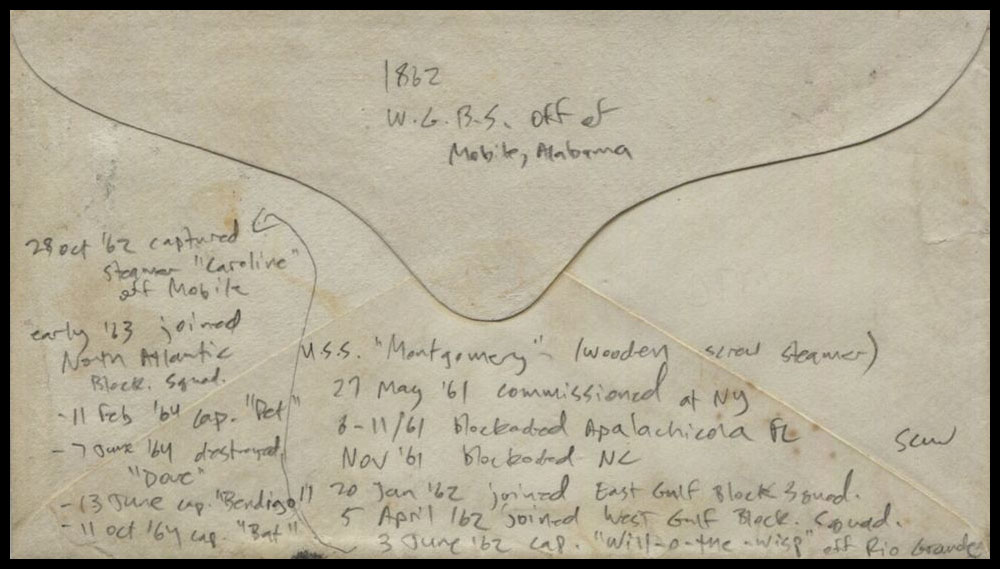 1862
W.G.B.S. off of
Mobile, Alabama
U.S.S. "Montgomery" - (wooden screw steamer)
27 May '61 commissioned at NY
8-11/61 blockaded Apalachicola FL
Nov '61 blockaded NC
20 Jan '62 joined East Gulf Block Squad.
5 April '62 joined West Gulf Block. Squad.
3 June '62 cap. "Will-o-the-wisp" off Rio Grande
28 Oct '62 captured
steamer "Caroline"
off Mobile
early '63 joined
North Atlantic
Block. Squad.
- 11 Feb '64 cap. "Pet"
- 7 June '64 destroyed
"Dove"
- 13 June cap. "Bendigo"
- 11 Oct '64 cap. "Bat"